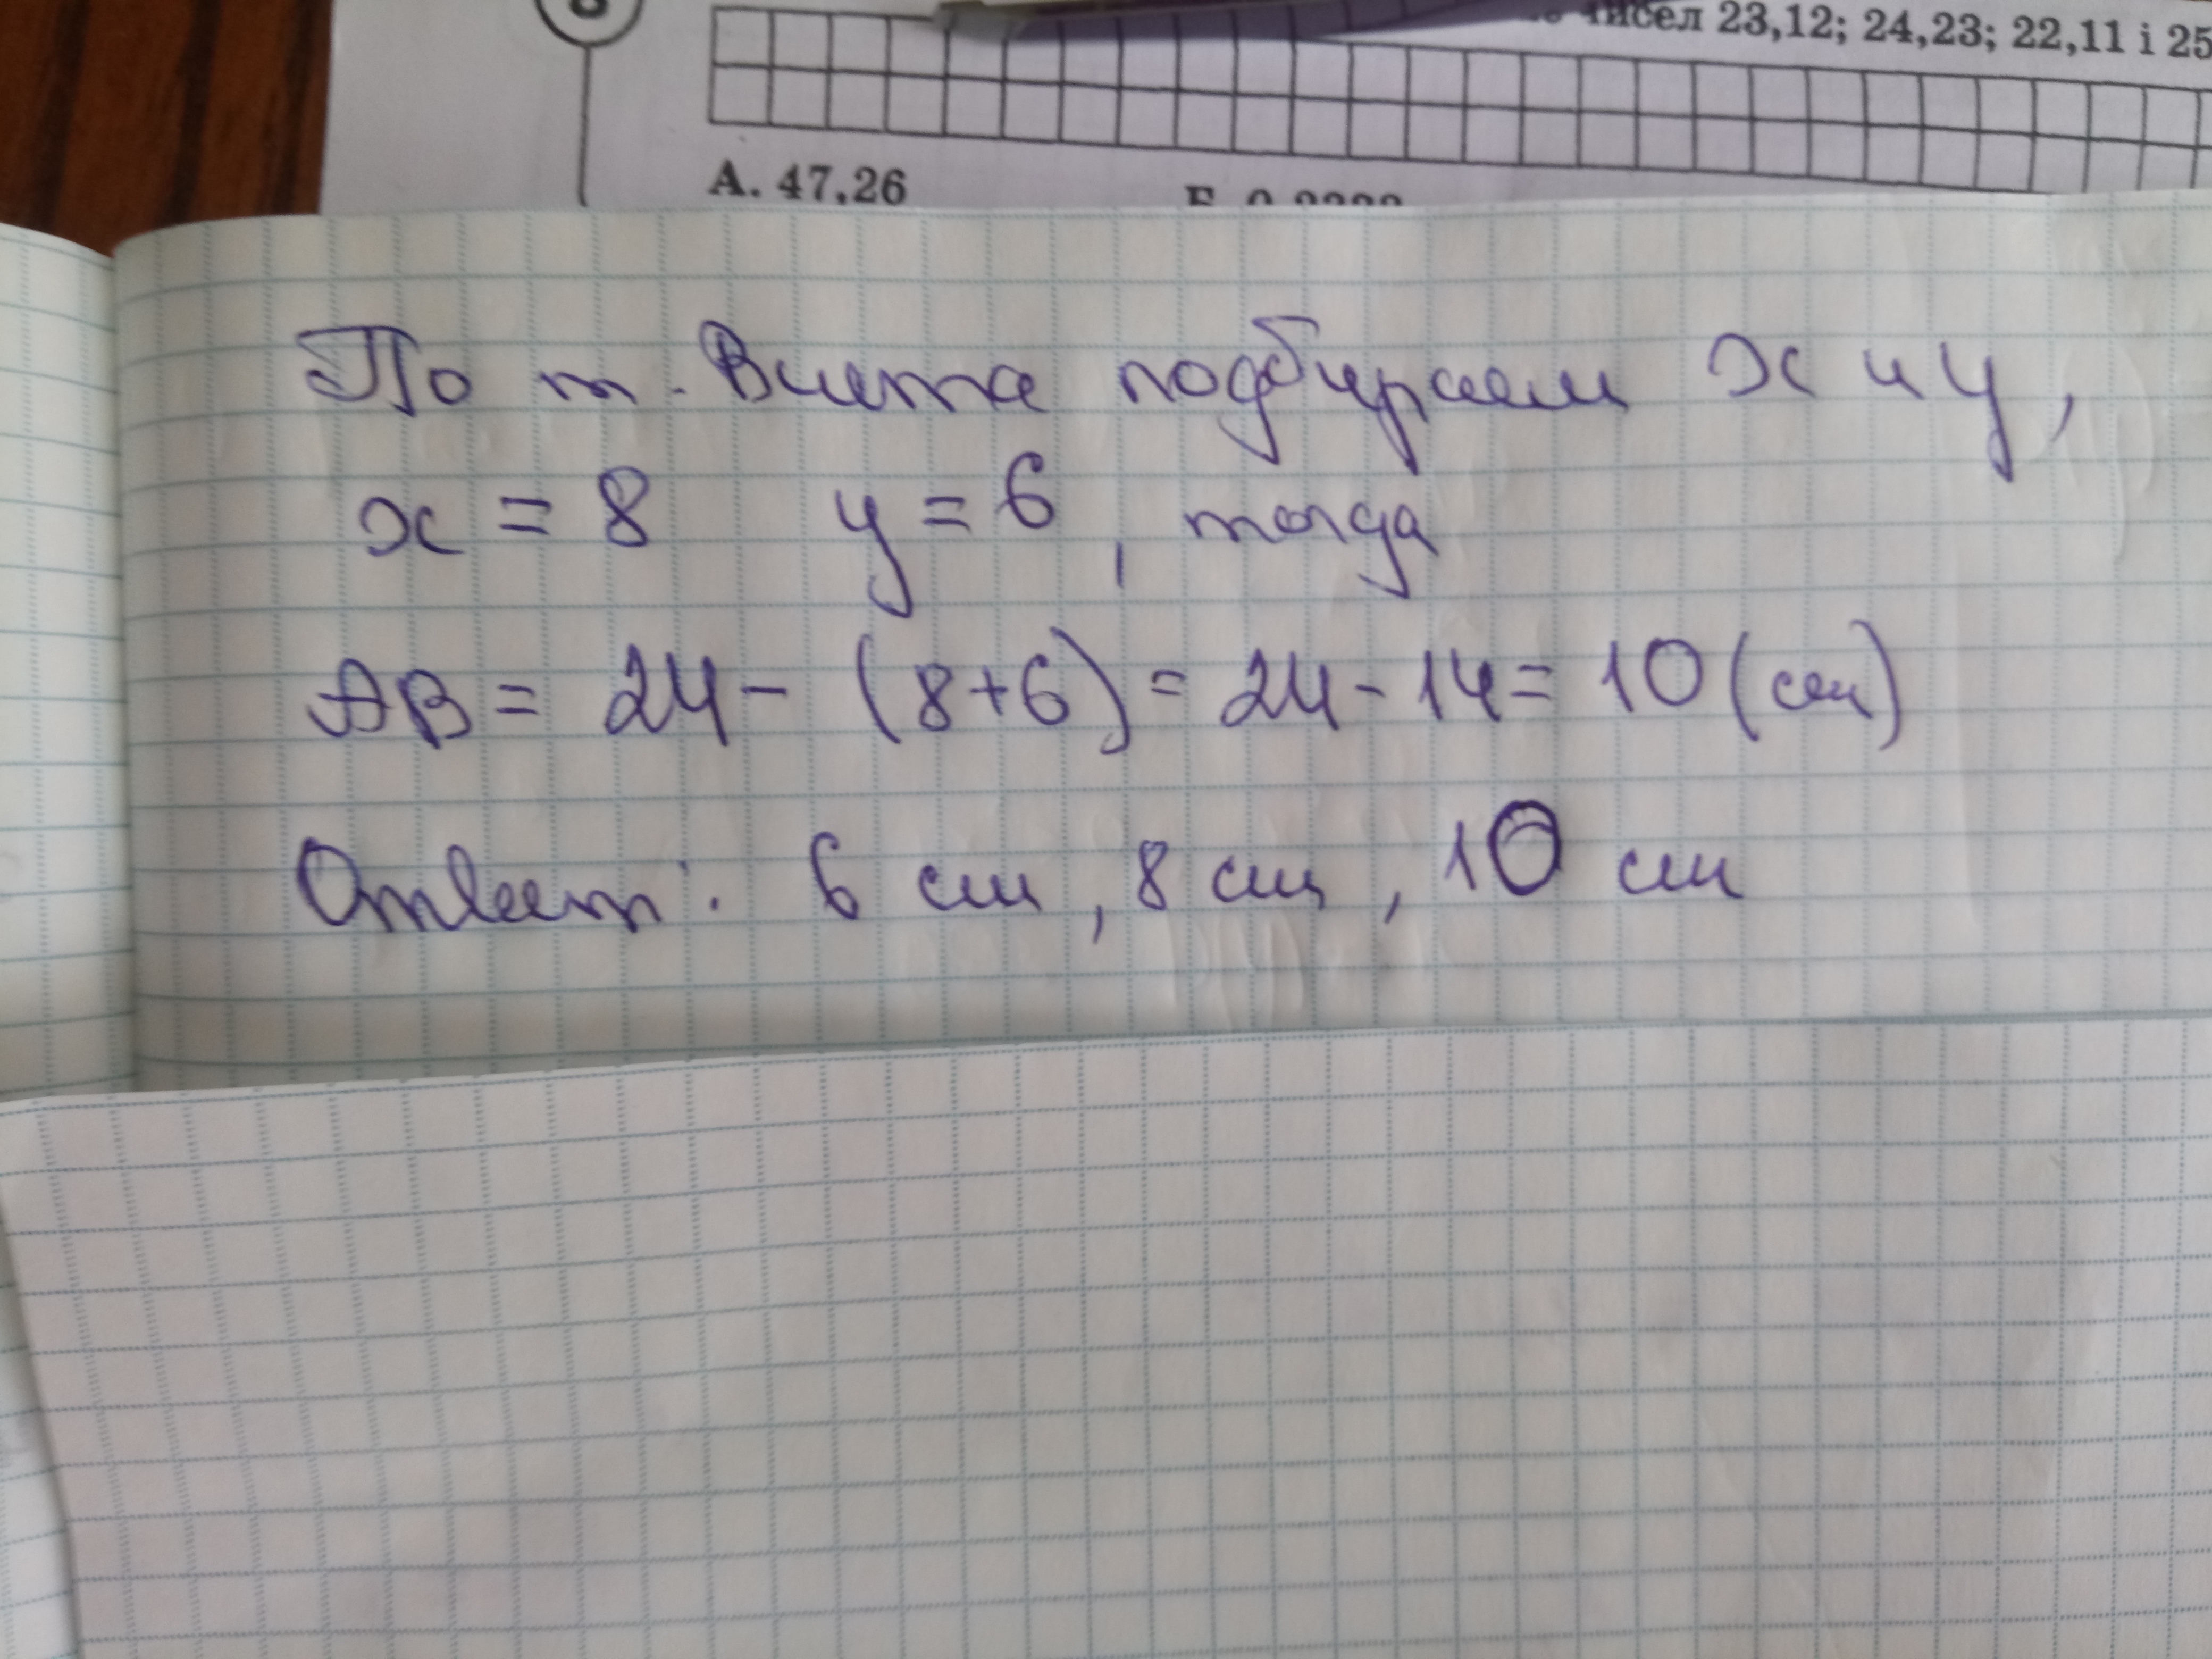 чисел 23,12; 24,23; 22,11 і 25
А. 47,26
По т. Виета подбираем x и y,
x = 8 y = 6, тогда
AB = 24 - (8+6) = 24 - 14 = 10 (см)
Ответ: 6 см, 8 см, 10 см